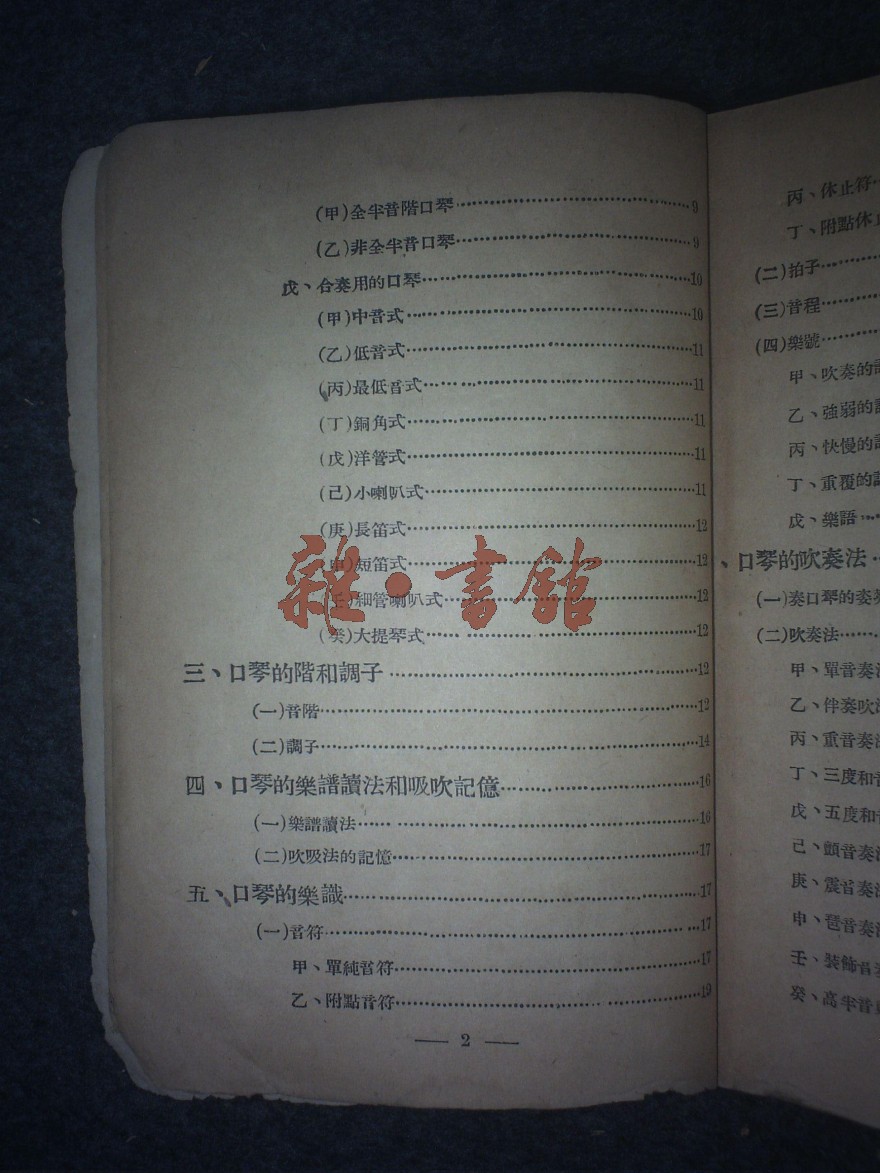 (甲)全半音階口琴……9
(乙)非全半音口琴……9
戊、合奏用的口琴……10
(甲)中音式……10
(乙)低音式……11
(丙)最低音式……11
(丁)銅角式……11
(戊)洋管式……11
(己)小喇叭式……11
(庚)長笛式……12
(申)短笛式……12
(壬)細管喇叭式……12
(癸)大提琴式……12
三、口琴的階和調子……12
(一)音階……12
(二)調子……14
四、口琴的樂譜讀法和吸吹記憶……16
(一)樂譜讀法……16
(二)吹吸法的記憶……17
五、口琴的樂識……17
(一)音符……17
甲、單純音符……17
乙、附點音符……19
— 2 —
雜•書館
丙、休止符…
丁、附點休止
(二)拍子……
(三)音程……
(四)樂號……
甲、吹奏的
乙、強弱的
丙、快慢的
丁、重覆的
戊、樂語…
、口琴的吹奏法…
(一)奏口琴的姿
(二)吹奏法……
甲、單音奏
乙、伴奏吹
丙、重音奏
丁、三度和音
戊、五度和音
己、顫音奏
庚、震音奏
申、琶音奏
壬、裝飾音
癸、高半音